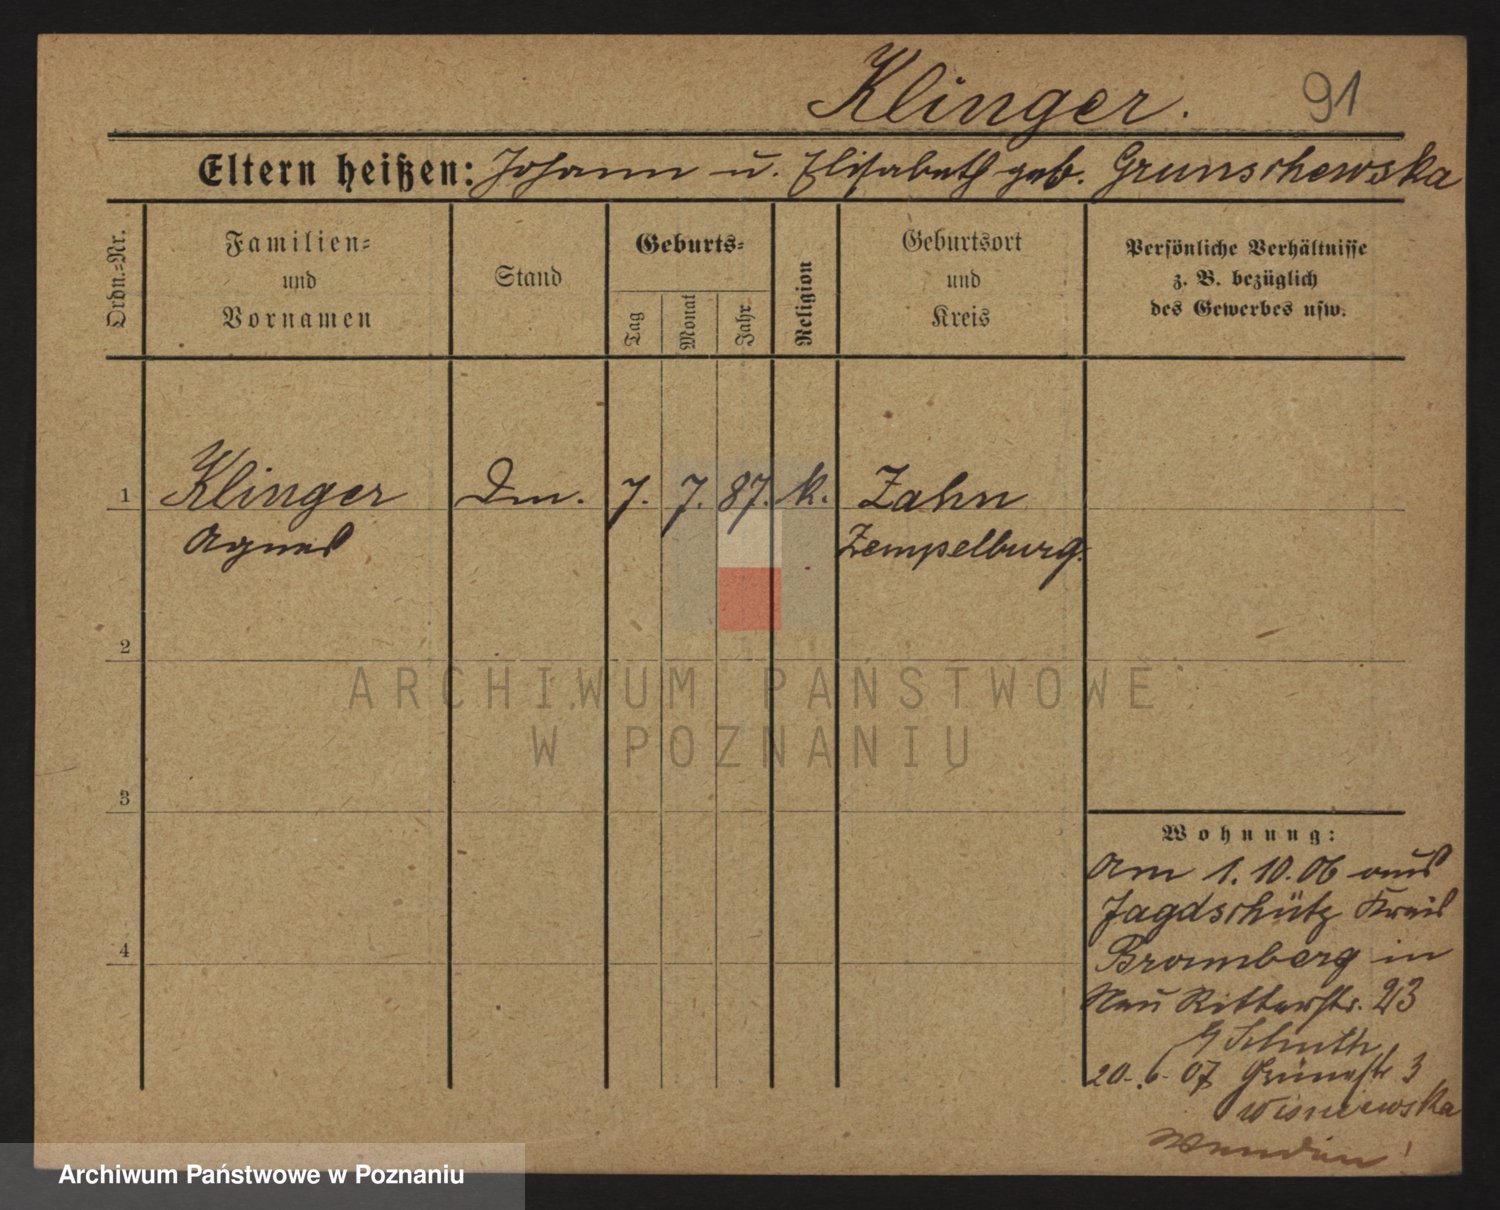 Klinger. 91
Eltern heißen: Johann u. Elisabeth geb. Grunschewska
Ordn.-Nr.
Familien-
und
Vornamen
Stand
Geburts-
Tag
Monat
Jahr
Religion
Geburtsort
und
Kreis
Persönliche Verhältnisse
z. B. bezüglich
des Gewerbes usw.
1 Klinger Dm. 7. 7. 87. k. Zahn
Agnes Zempelburg.
2
3
4
Wohnung:
Am 1.10.06 aus
Jagdschütz Kreis
Bromberg in
Neu Ritterstr. 23
b/ Schulth
20. 6. 07 Grünestr 3
Wisniewska
ARCHIWUM PAŃSTWOWE
W POZNANIU
Archiwum Państwowe w Poznaniu